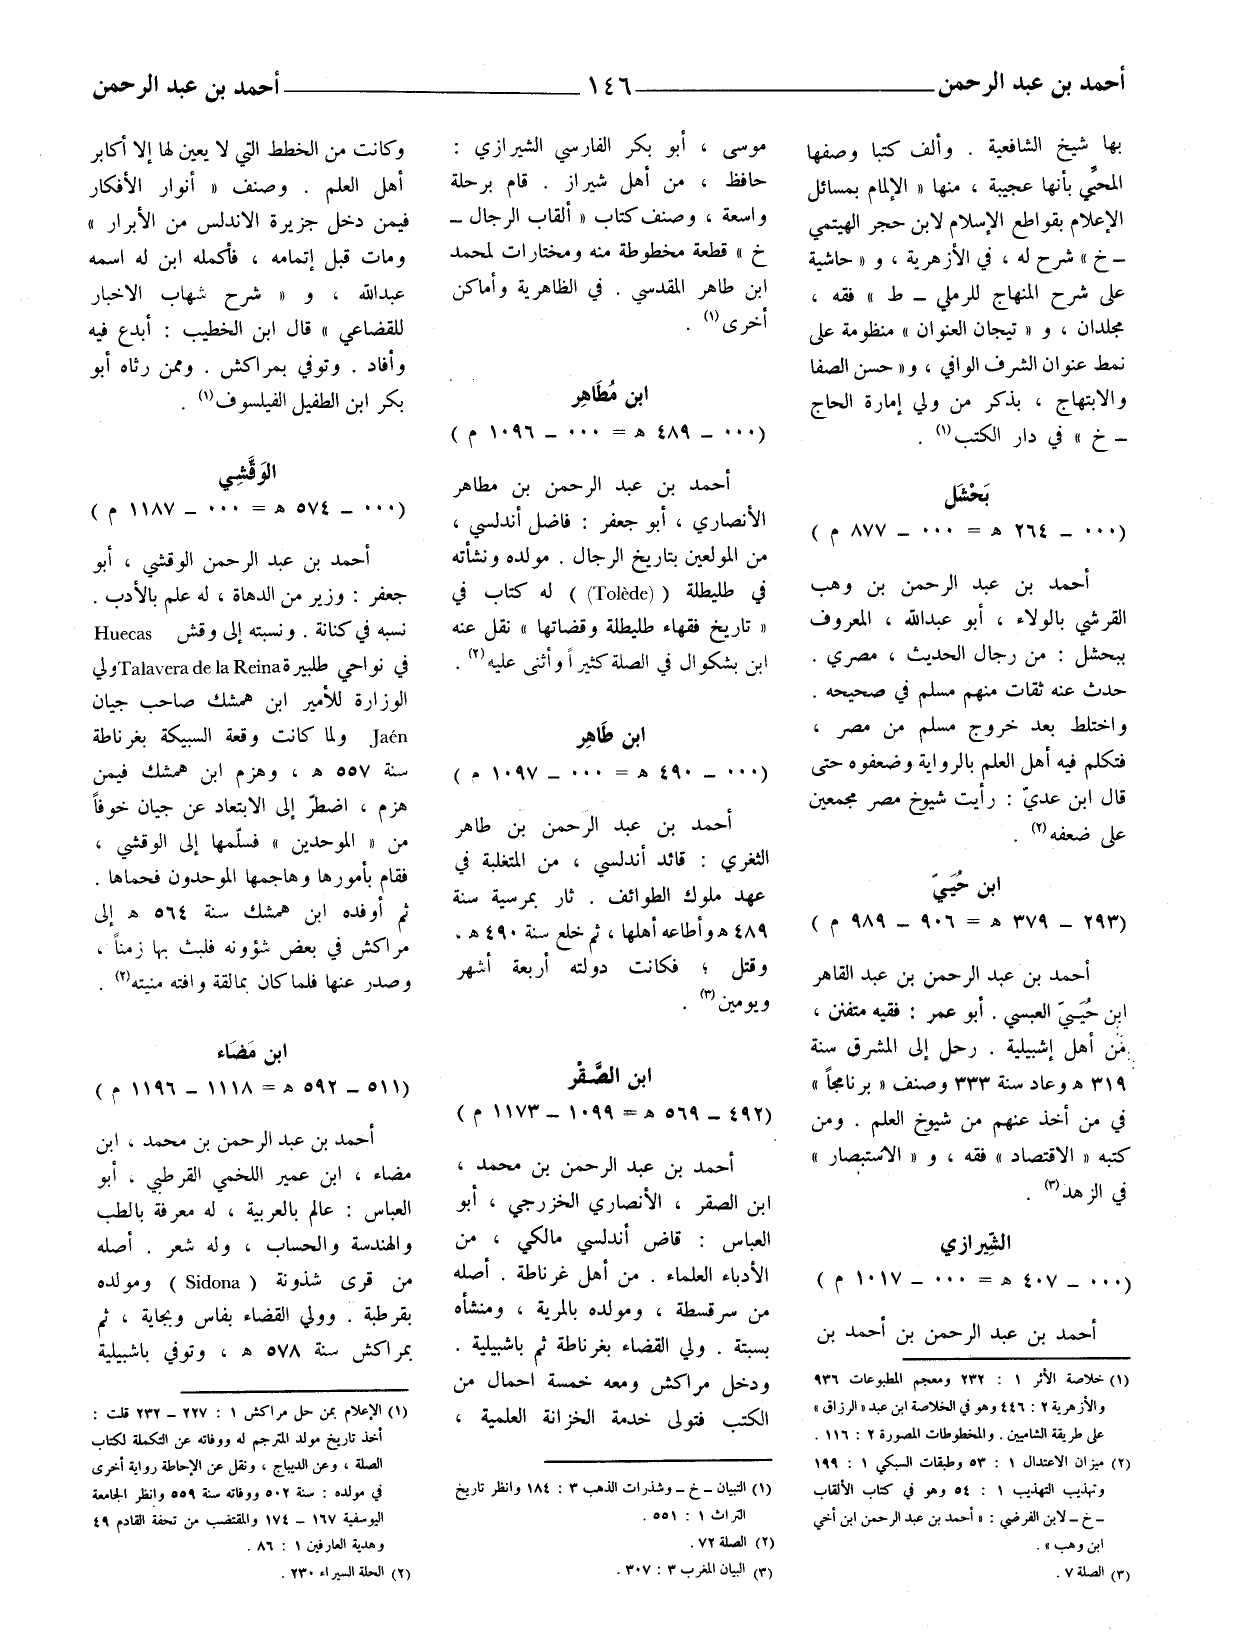 أحمد بن عبد الرحمن ١٤٦ أحمد بن عبد الرحمن
بها شيخ الشافعية . وألف كتبا وصفها
المحبِّي بأنها عجيبة ، منها « الإلمام بمسائل
الإعلام بقواطع الإسلام لابن حجر الهيتمي
ـ خ » شرح له ، في الأزهرية ، و « حاشية
على شرح المنهاج للرملي ـ ط » فقه ،
مجلدان ، و « تيجان العنوان » منظومة على
نمط عنوان الشرف الوافي ، و« حسن الصفا
والابتهاج ، بذكر من ولي إمارة الحاج
ـ خ » في دار الكتب(١) .
بَحْشَل
(٠٠٠ ـ ٢٦٤ هـ = ٠٠٠ ـ ٨٧٧ م )
أحمد بن عبد الرحمن بن وهب
القرشي بالولاء ، أبو عبدالله ، المعروف
ببحشل : من رجال الحديث ، مصري .
حدث عنه ثقات منهم مسلم في صحيحه .
واختلط بعد خروج مسلم من مصر ،
فتكلم فيه أهل العلم بالرواية وضعفوه حتى
قال ابن عديّ : رأيت شيوخ مصر مجمعين
على ضعفه(٢) .
ابن حُيَـيّ
(٢٩٣ ـ ٣٧٩ هـ = ٩٠٦ ـ ٩٨٩ م )
أحمد بن عبد الرحمن بن عبد القاهر
ابن حُيَـيّ العبسي . أبو عمر : فقيه متفنن ،
من أهل إشبيلية . رحل إلى المشرق سنة
٣١٩ هـ وعاد سنة ٣٣٣ وصنف « برنامجاً »
في من أخذ عنهم من شيوخ العلم . ومن
كتبه « الاقتصاد » فقه ، و « الاستبصار »
في الزهد(٣) .
الشِّيرازي
(٠٠٠ ـ ٤٠٧ هـ = ٠٠٠ ـ ١٠١٧ م )
أحمد بن عبد الرحمن بن أحمد بن
(١) خلاصة الأثر ١ : ٢٣٢ ومعجم المطبوعات ٩٣٦
والأزهرية ٢ : ٤٤٦ وهو في الخلاصة ابن عبد « الرزاق »
على طريقة الشاميين . والمخطوطات المصورة ٢ : ١١٦ .
(٢) ميزان الاعتدال ١ : ٥٣ وطبقات السبكي ١ : ١٩٩
وتهذيب التهذيب ١ : ٥٤ وهو في كتاب الألقاب
ـ خ ـ لابن الفرضي : « أحمد بن عبد الرحمن ابن أخي
ابن وهب » .
(٣) الصلة ٧ .
موسى ، أبو بكر الفارسي الشيرازي :
حافظ ، من أهل شيراز . قام برحلة
واسعة ، وصنف كتاب « ألقاب الرجال ـ
خ » قطعة مخطوطة منه ومختارات لمحمد
ابن طاهر المقدسي . في الظاهرية وأماكن
أخرى(١) .
ابن مُطَاهِر
(٠٠٠ ـ ٤٨٩ هـ = ٠٠٠ ـ ١٠٩٦ م )
أحمد بن عبد الرحمن بن مطاهر
الأنصاري ، أبو جعفر : فاضل أندلسي ،
من المولعين بتاريخ الرجال . مولده ونشأته
في طليطلة ( (Tolède) ) له كتاب في
« تاريخ فقهاء طليطلة وقضاتها » نقل عنه
ابن بشكوال في الصلة كثيراً وأثنى عليه(٢) .
ابن طَاهِر
(٠٠٠ ـ ٤٩٠ هـ = ٠٠٠ ـ ١٠٩٧ م )
أحمد بن عبد الرحمن بن طاهر
الثغري : قائد أندلسي ، من المتغلبة في
عهد ملوك الطوائف . ثار بمرسية سنة
٤٨٩ هـ وأطاعه أهلها ، ثم خلع سنة ٤٩٠ هـ .
وقتل ؛ فكانت دولته أربعة أشهر
ويومين(٣) .
ابن الصَّقْر
(٤٩٢ ـ ٥٦٩ هـ = ١٠٩٩ ـ ١١٧٣ م )
أحمد بن عبد الرحمن بن محمد ،
ابن الصقر ، الأنصاري الخزرجي ، أبو
العباس : قاض أندلسي مالكي ، من
الأدباء العلماء . من أهل غرناطة . أصله
من سرقسطة ، ومولده بالمرية ، ومنشأه
بسبتة . ولي القضاء بغرناطة ثم باشبيلية .
ودخل مراكش ومعه خمسة احمال من
الكتب فتولى خدمة الخزانة العلمية ،
(١) التبيان ـ خ ـ وشذرات الذهب ٣ : ١٨٤ وانظر تاريخ
التراث ١ : ٥٥١ .
(٢) الصلة ٧٢ .
(٣) البيان المغرب ٣ : ٣٠٧ .
وكانت من الخطط التي لا يعين لها إلا أكابر
أهل العلم . وصنف « أنوار الأفكار
فيمن دخل جزيرة الاندلس من الأبرار »
ومات قبل إتمامه ، فأكمله ابن له اسمه
عبدالله ، و « شرح شهاب الاخبار
للقضاعي » قال ابن الخطيب : أبدع فيه
وأفاد . وتوفي بمراكش . وممن رثاه أبو
بكر ابن الطفيل الفيلسوف(١) .
الوَقَّشِي
(٠٠٠ ـ ٥٧٤ هـ = ٠٠٠ ـ ١١٨٧ م )
أحمد بن عبد الرحمن الوقشي ، أبو
جعفر : وزير من الدهاة ، له علم بالأدب .
نسبه في كنانة . ونسبته إلى وقش Huecas
في نواحي طلبيرة Talavera de la Reina ولي
الوزارة للأمير ابن همشك صاحب جيان
Jaén ولما كانت وقعة السبيكة بغرناطة
سنة ٥٥٧ هـ ، وهزم ابن همشك فيمن
هزم ، اضطرّ إلى الابتعاد عن جيان خوفاً
من « الموحدين » فسلّمها إلى الوقشي ،
فقام بأمورها وهاجمها الموحدون فحماها .
ثم أوفده ابن همشك سنة ٥٦٤ هـ إلى
مراكش في بعض شؤونه فلبث بها زمناً ،
وصدر عنها فلما كان بمالقة وافته منيته(٢) .
ابن مَضَاء
(٥١١ ـ ٥٩٢ هـ = ١١١٨ ـ ١١٩٦ م )
أحمد بن عبد الرحمن بن محمد ، ابن
مضاء ، ابن عمير اللخمي القرطبي ، أبو
العباس : عالم بالعربية ، له معرفة بالطب
والهندسة والحساب ، وله شعر . أصله
من قرى شذونة ( Sidona ) ومولده
بقرطبة . وولي القضاء بفاس وبجاية ، ثم
بمراكش سنة ٥٧٨ هـ ، وتوفي باشبيلية
(١) الإعلام بمن حل مراكش ١ : ٢٢٧ ـ ٢٣٢ قلت :
أخذ تاريخ مولد المترجم له ووفاته عن التكملة لكتاب
الصلة ، وعن الديباج ، ونقل عن الإحاطة رواية أخرى
في مولده : سنة ٥٠٢ ووفاته سنة ٥٥٩ وانظر الجامعة
اليوسفية ١٦٧ ـ ١٧٤ والمقتضب من تحفة القادم ٤٩
وهدية العارفين ١ : ٨٦ .
(٢) الحلة السيراء ٢٣٠ .